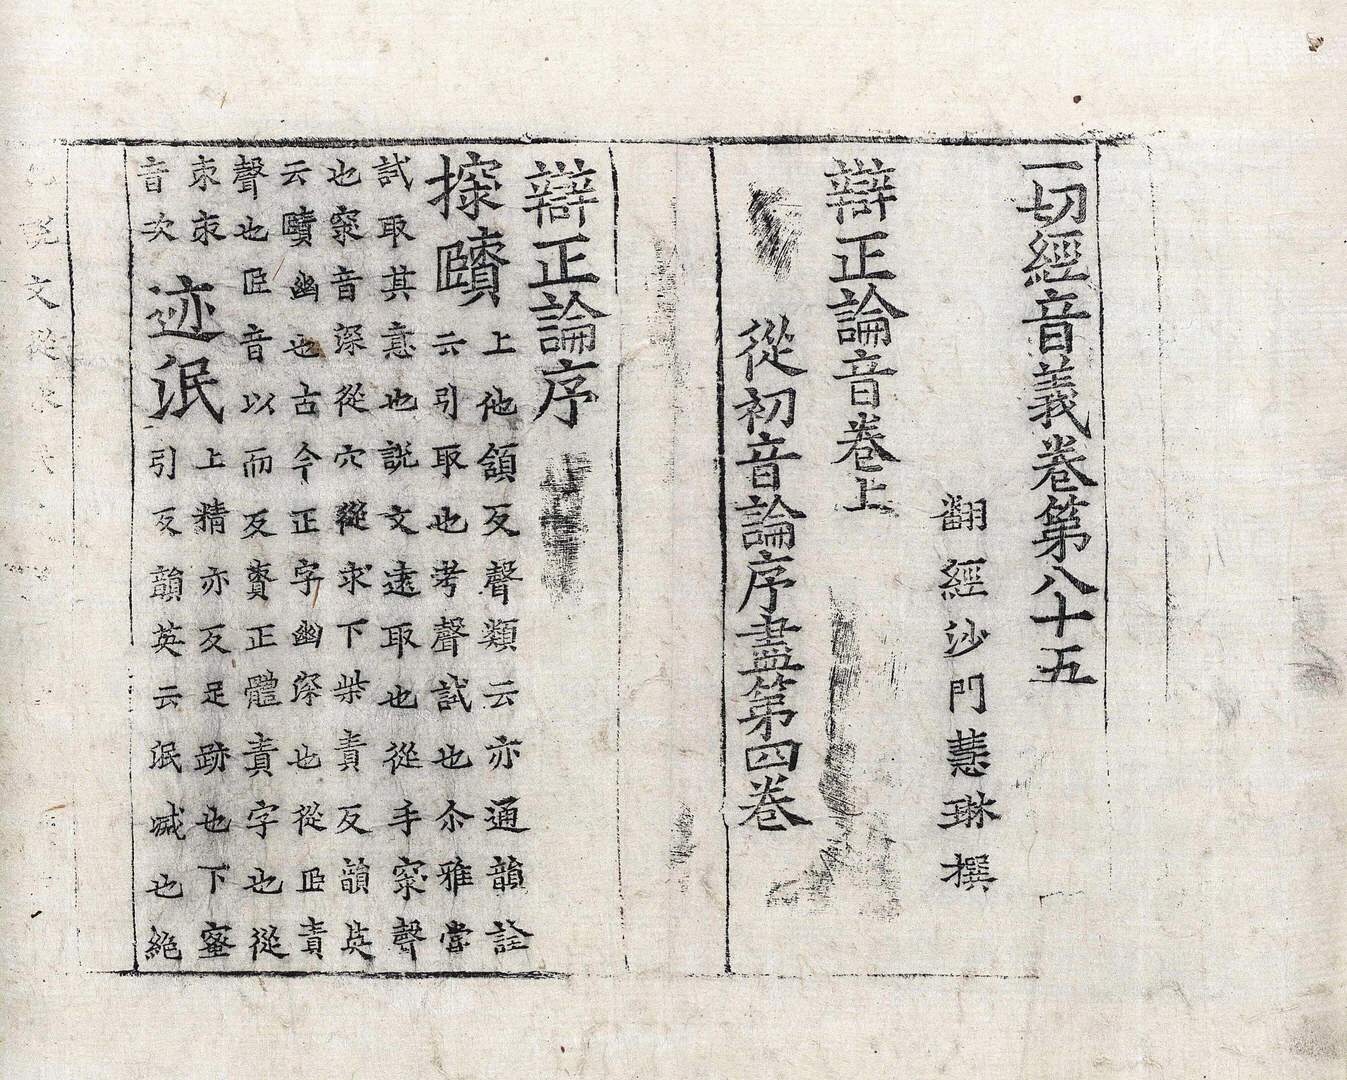 一切經音義卷第八十五
翻經沙門慧琳撰
辯正論音卷上
從初音論序盡第四卷
辯正論序
探賾上他頷反聲類云亦通韻詮
云引取也考聲試也尒雅甞
試取其意也說文遠取也從手罙聲
也罙音深從穴從求下柴責反韻英
云賾幽也古今正字幽深也從𦣞責
聲也𦣞音以而反賾正體責字也從
朿朿
音次
迹泯上精亦反足跡也下蜜
引反韻英云泯滅也絶
說文從